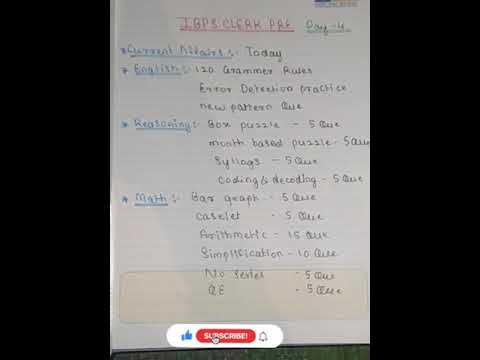 IBPS CLERK PRE Day-4
* Current Affairs:- Today
* English:- 120 Grammer Rules
Error Detection practice
new pattern Que
* Reasoning:- Box puzzle - 5 Que
month based puzzle - 5 Que
Syllogs - 5 Que
Coding & decoding - 5 Que
* Math:- Bar graph - 5 Que
Caselet - 5 Que
Arithmetic - 15 Que
Simplification - 10 Que
No series - 5 Que
QE - 5 Que
SUBSCRIBE!